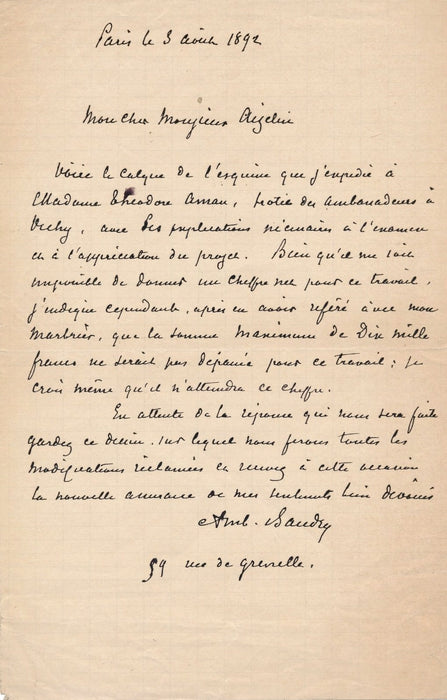 Paris le 3 août 1892
Mon cher Monsieur Aizelin
Voici le calque de l'esquisse que j'expédie à
Madame Théodore Aman, hotel des ambassadeurs à
Vichy, avec les explications nécessaires à l'examen
et à l'appréciation du projet. Bien qu'il me soit
impossible de donner un chiffre net pour ce travail,
j'indique cependant, après en avoir référé à mon
marbrier, que la somme maximum de Dix mille
francs ne serait pas dépassée pour ce travail ; je
crois même qu'il n'atteindra ce chiffre.
En attente de la réponse qui nous sera faite
gardez ce dessin, sur lequel nous ferons toutes les
modifications réclamées et recevez à cette occasion
la nouvelle assurance de mes sentiments bien dévoués
Amb. Baudry
59 rue de grenelle.